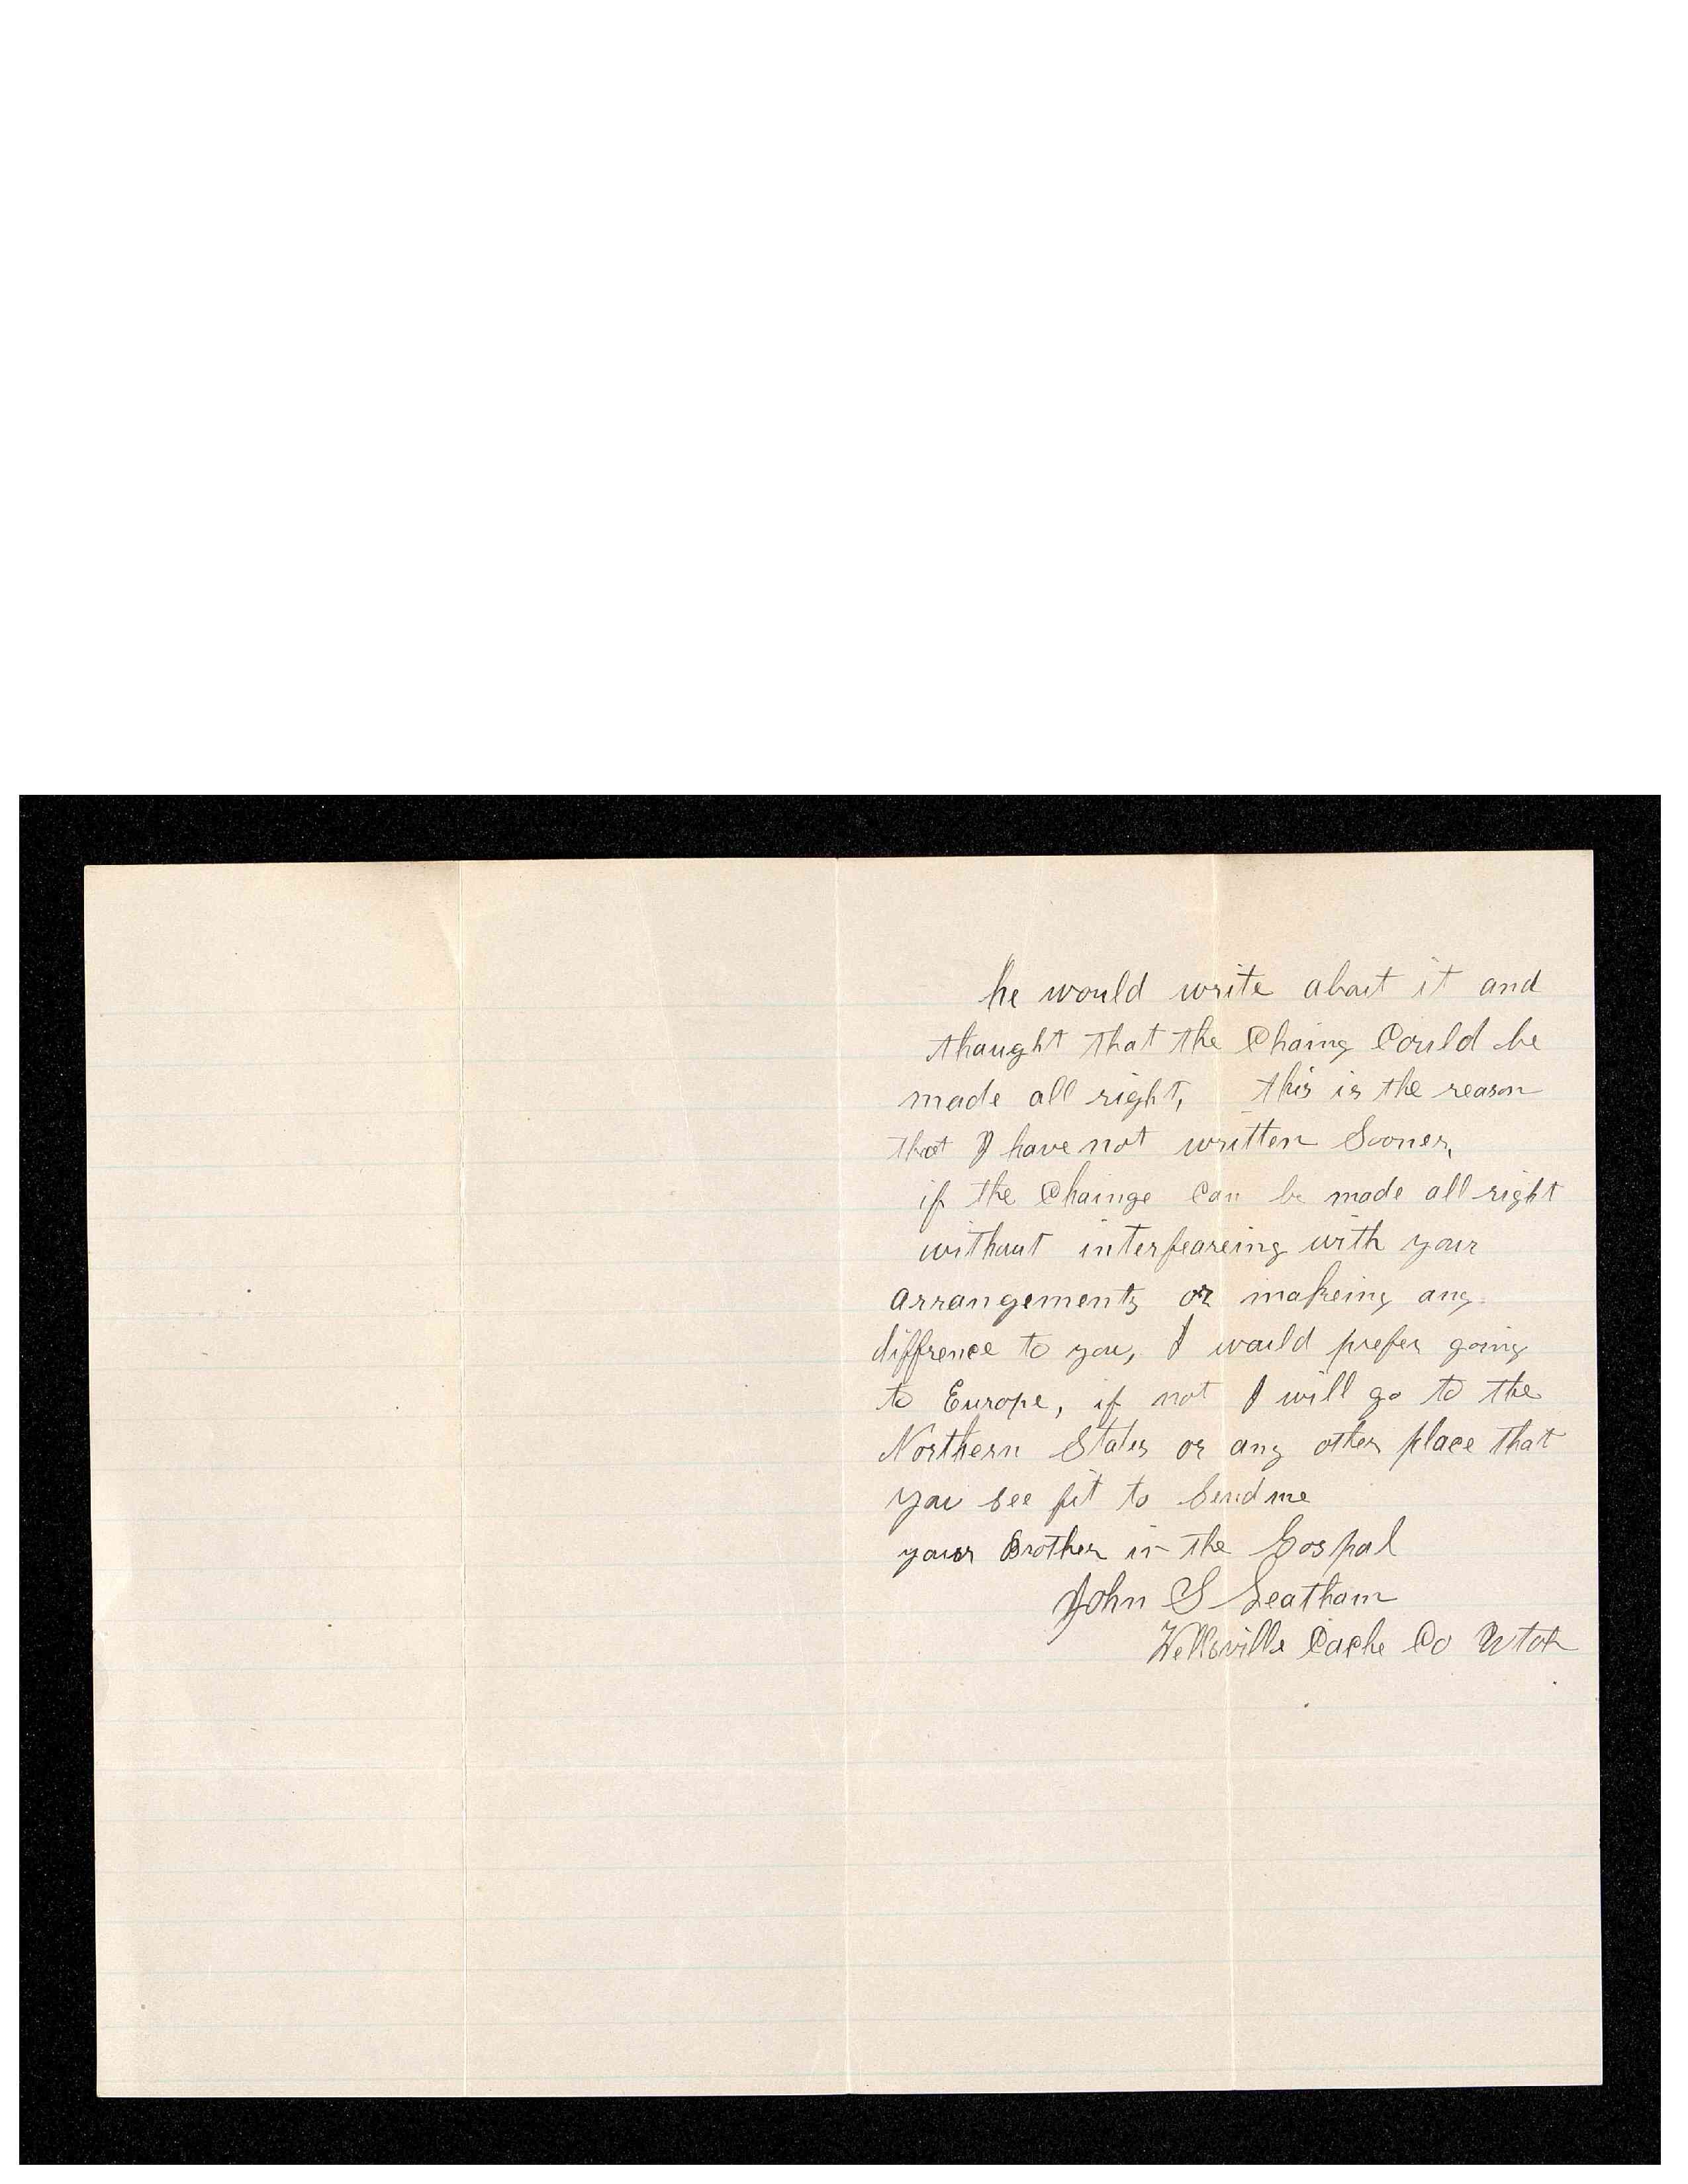 he would write about it and
thought that the Chaing Could be
made all right, this is the reason
that I have not written Sooner,
if the Chainge Can be made all right
without interfeareing with your
arrangements or makeing any
diffrence to you, I would prefer going
to Europe, if not I will go to the
Northern States or any other place that
you see fit to Send me
your Brother in the Gospal
John S Leatham
Wellsville Cache Co Utah